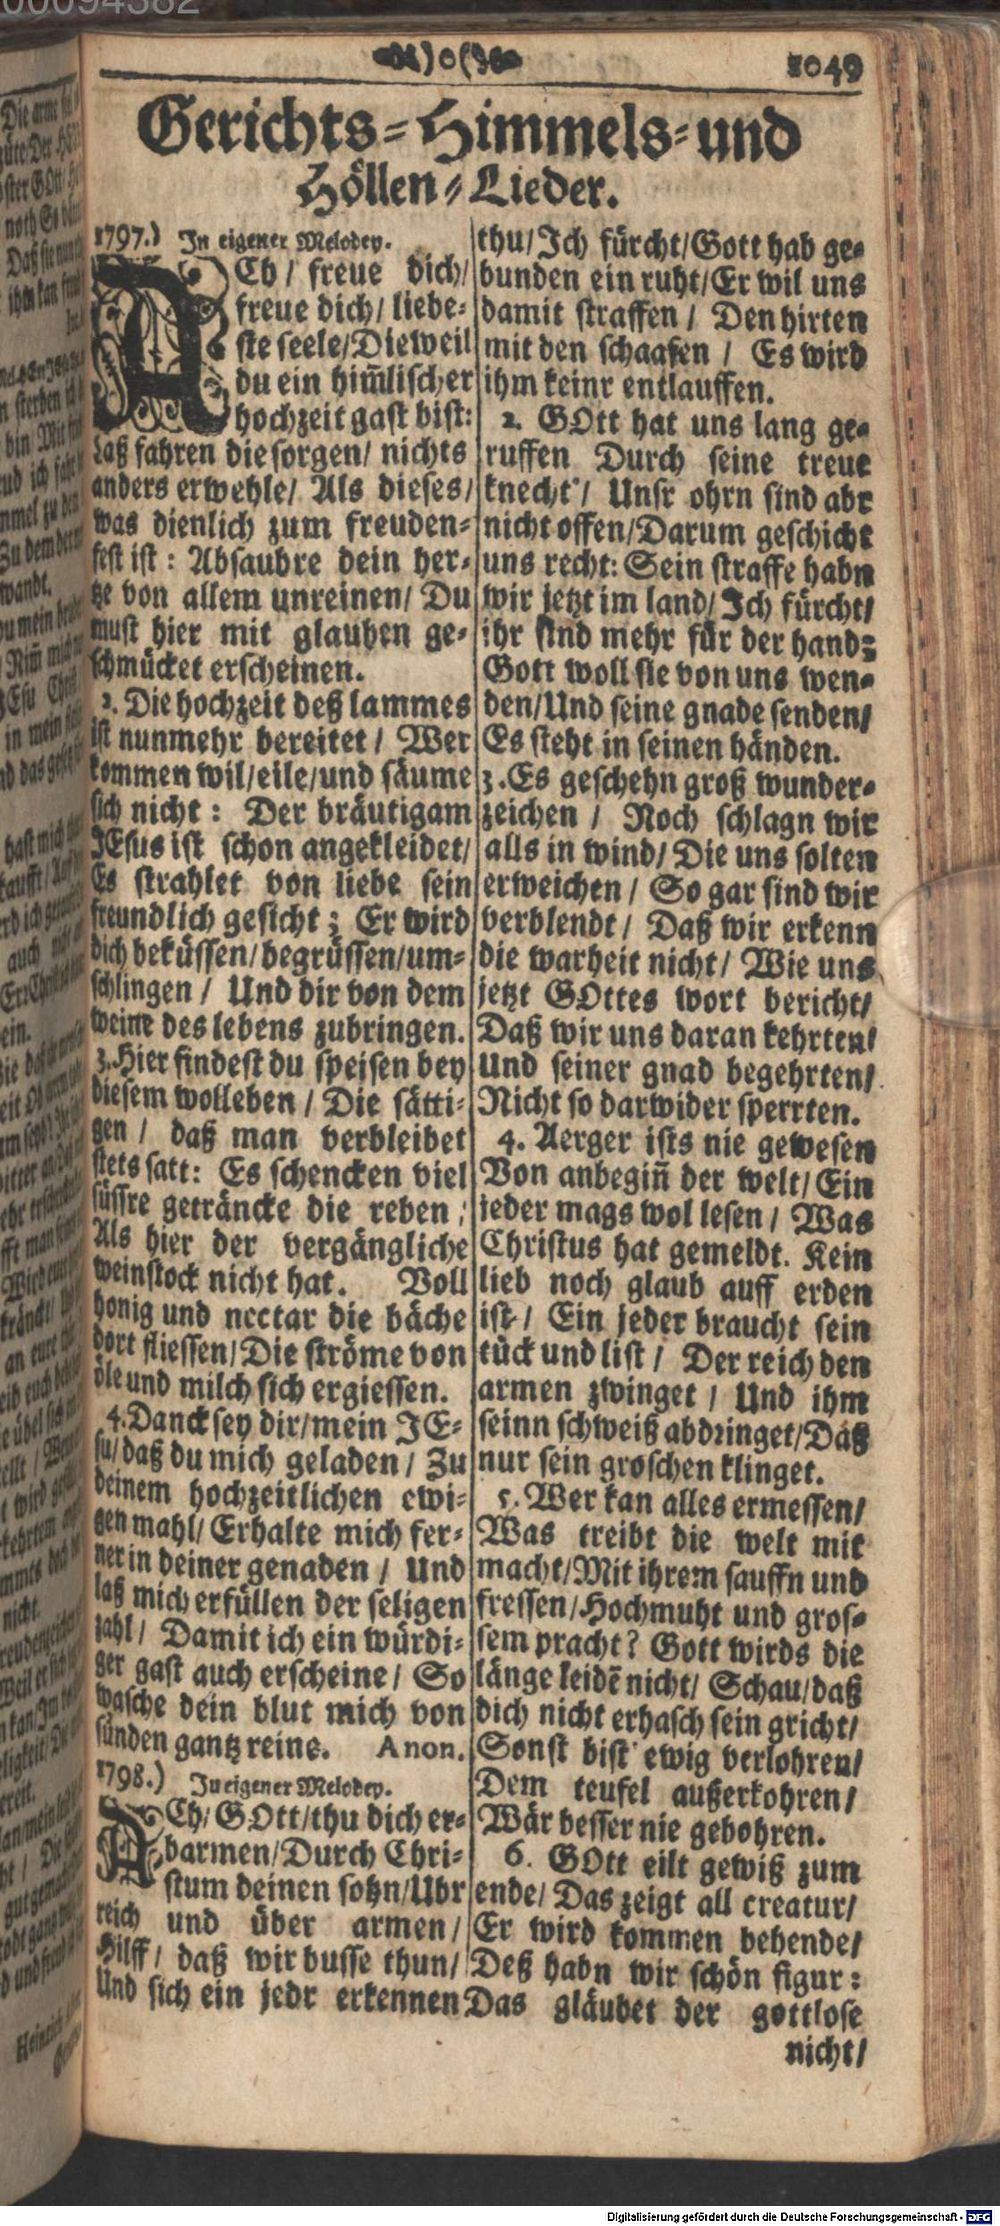 )o(
1049
Gerichts-Himmels-und
Höllen-Lieder.
1797.) In eigener Melodey.
ACh / freue dich/
freue dich/ liebe-
ste seele/Dieweil
du ein him̃lischer
hochzeit gast bist:
Laß fahren die sorgen/ nichts
anders erwehle/ Als dieses/
was dienlich zum freuden-
fest ist : Absaubre dein her-
tze von allem unreinen/ Du
must hier mit glauben ge-
schmücket erscheinen.
2. Die hochzeit deß lammes
ist nunmehr bereitet / Wer
kommen wil/eile/und säume
sich nicht : Der bräutigam
JEsus ist schon angekleidet/
Es strahlet von liebe sein
freundlich gesicht ; Er wird
dich beküssen/begrüssen/um-
schlingen / Und dir von dem
weine des lebens zubringen.
3. Hier findest du speisen bey
diesem wolleben / Die sätti-
gen / daß man verbleibet
stets satt: Es schencken viel
süssre geträncke die reben ;
Als hier der vergängliche
weinstock nicht hat. Voll
honig und nectar die bäche
dort fliessen/Die ströme von
öle und milch sich ergiessen.
4. Danck sey dir/mein JE-
su/daß du mich geladen / Zu
deinem hochzeitlichen ewi-
gen mahl/ Erhalte mich fer-
ner in deiner genaden / Und
laß mich erfüllen der seligen
zahl / Damit ich ein würdi-
ger gast auch erscheine / So
wasche dein blut mich von
sünden gantz reine. Anon.
1798.) In eigener Melodey.
ACh/ GOtt/thu dich er-
barmen/Durch Chri-
stum deinen sohn/Ubr
reich und über armen/
Hilff/ daß wir busse thun/
Und sich ein jedr erkennen
thu/Ich fürcht/Gott hab ge-
bunden ein ruht/Er wil uns
damit straffen / Den hirten
mit den schaafen / Es wird
ihm keinr entlauffen.
2. GOtt hat uns lang ge-
ruffen Durch seine treue
knecht / Unsr ohrn sind abr
nicht offen/Darum geschicht
uns recht: Sein straffe habn
wir jetzt im land/ Ich fürcht/
ihr sind mehr für der hand:
Gott woll sie von uns wen-
den/Und seine gnade senden/
Es steht in seinen händen.
3. Es geschehn groß wunder-
zeichen / Noch schlagn wir
alls in wind/ Die uns solten
erweichen / So gar sind wir
verblendt / Daß wir erkenn
die warheit nicht/ Wie uns
jetzt GOttes wort bericht/
Daß wir uns daran kehrten/
Und seiner gnad begehrten/
Nicht so darwider sperrten.
4. Aerger ists nie gewesen
Von anbegiñ der welt/ Ein
jeder mags wol lesen / Was
Christus hat gemeldt. Kein
lieb noch glaub auff erden
ist / Ein jeder braucht sein
tück und list / Der reich den
armen zwinget / Und ihm
seinn schweiß abdringet/Daß
nur sein groschen klinget.
5. Wer kan alles ermessen/
Was treibt die welt mit
macht/Mit ihrem sauffn und
fressen/Hochmuht und gros-
sem pracht? Gott wirds die
länge leidē nicht/ Schau/daß
dich nicht erhasch sein gricht/
Sonst bist ewig verlohren/
Dem teufel außerkohren/
Wär besser nie gebohren.
6. GOtt eilt gewiß zum
ende/ Das zeigt all creatur/
Er wird kommen behende/
Deß habn wir schön figur :
Das gläubet der gottlose
nicht/
Digitalisierung gefördert durch die Deutsche Forschungsgemeinschaft - DFG